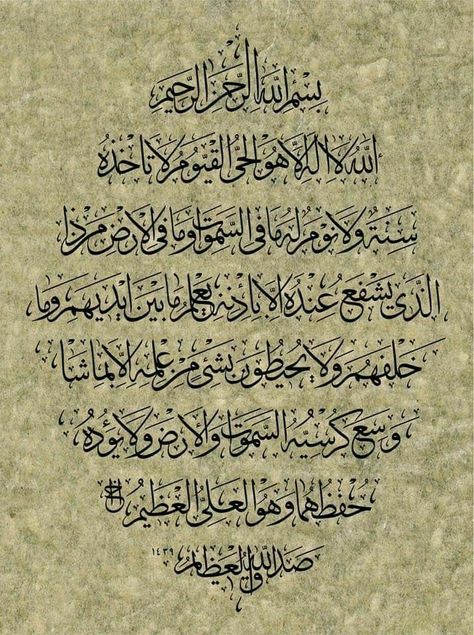 بسم الله الرحمن الرحيم
الله لا اله الا هو الحى القيوم لا تاخذه
سنة ولا نوم له ما فى السموات وما فى الارض من ذا
الذى يشفع عنده الا باذنه يعلم ما بين ايديهم وما
خلفهم ولا يحيطون بشئ من علمه الا بما شا
وسع كرسيه السموات والارض ولا يؤده
حفظهما وهو العلى العظيم
صدق الله العظيم ١٤٣٩